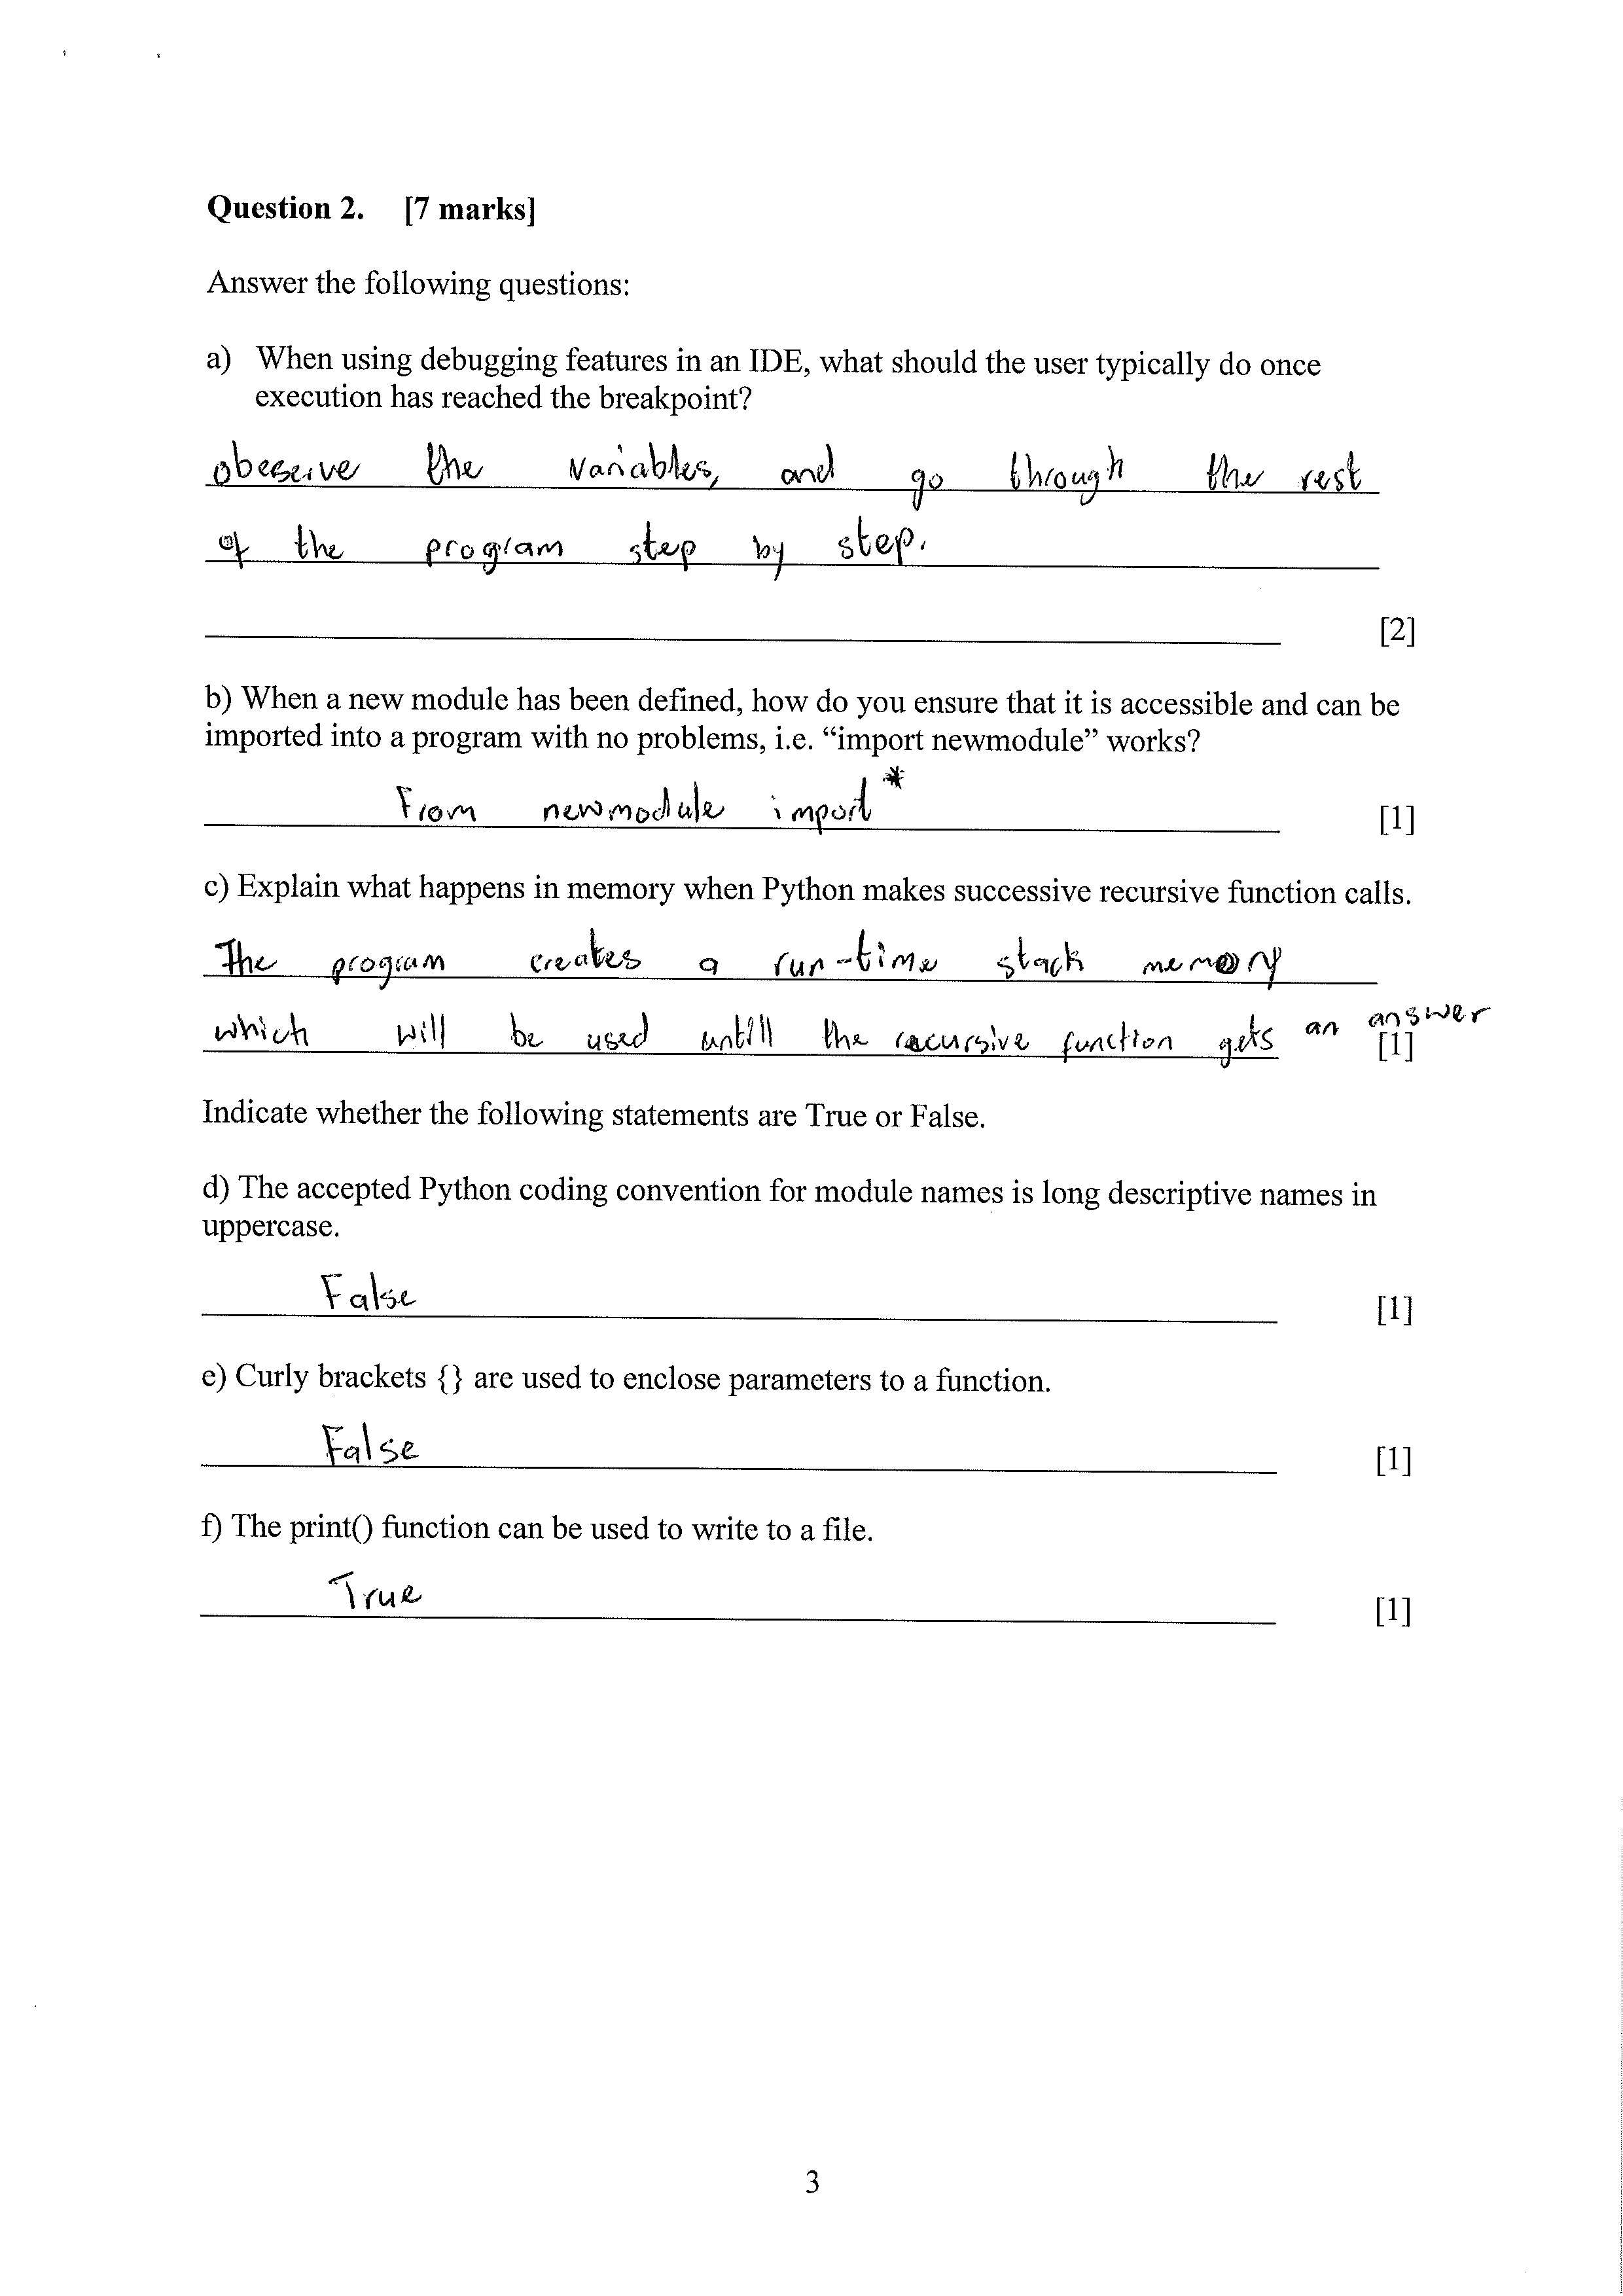 Question 2. [7 marks]
Answer the following questions:
a) When using debugging features in an IDE, what should the user typically do once
execution has reached the breakpoint?
obeserve the variables, and go through the rest
of the program step by step.
[2]
b) When a new module has been defined, how do you ensure that it is accessible and can be
imported into a program with no problems, i.e. “import newmodule” works?
From newmodule import *
[1]
c) Explain what happens in memory when Python makes successive recursive function calls.
The program creates a run-time stack memory
which will be used untill the recursive function gets an answer
[1]
Indicate whether the following statements are True or False.
d) The accepted Python coding convention for module names is long descriptive names in
uppercase.
False
[1]
e) Curly brackets {} are used to enclose parameters to a function.
False
[1]
f) The print() function can be used to write to a file.
True
[1]
3